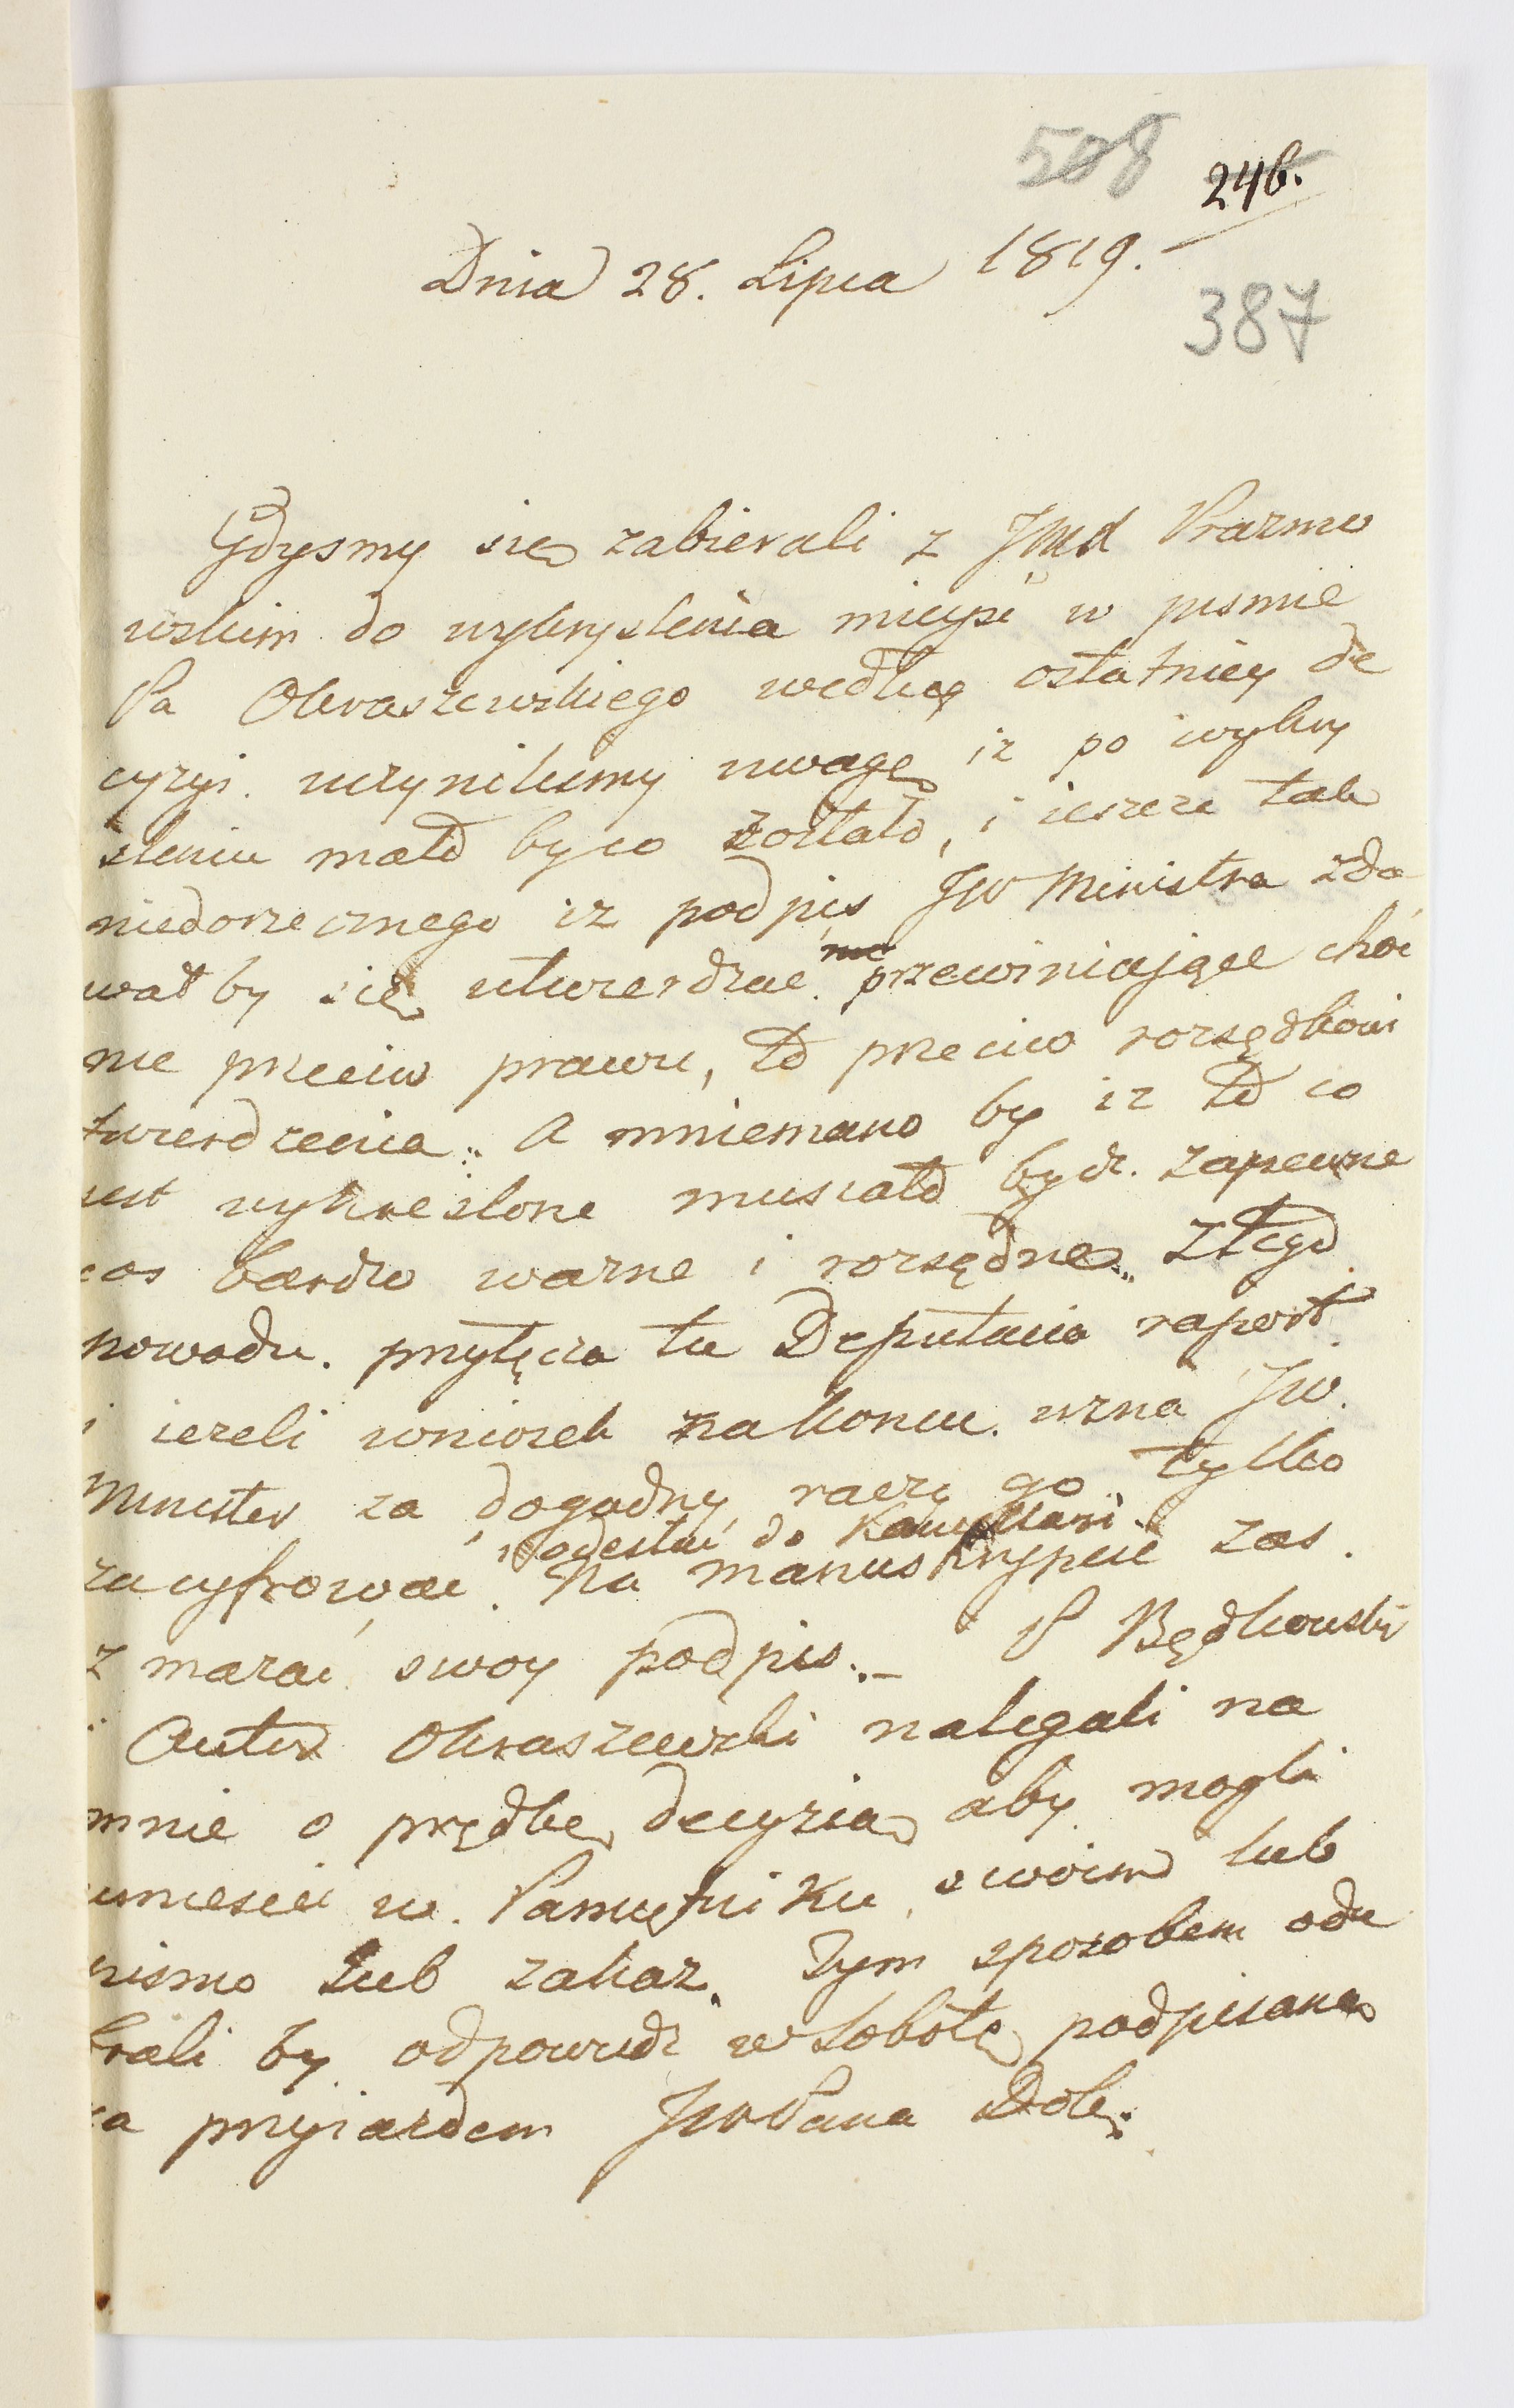 508
246.
Dnia 28. Lipca 1819.
387
Gdysmy się zabierali z Jmd Prazmo
wskim do wykryslenia mieysc w pismie
Pa Okraszewskiego według ostatniey de
cyzyi. uczynilismy uwagę iz po wykry
sleniu mało by co zostało, i ieszcze tak
niedorzecznego iz podpis JW Ministra zda
wałby się utwierdzać przewiniające choć
nie przeciw prawu, to przeciw rozsądkowi
twierdzenia. A mniemano by iz to co
iest wykreslone musiało bydz. zapewne
cos bardzo wazne i rozsądne. Ztego
powodu. przyłącza tu Deputacia raport
i iezeli wniosek na koncu. uzna JW.
Minister za dogodny, raczy go tylko
i odesłać do Kancellarii
zacyfrować. Na manuskrypcie zas.
zmazać swoy podpis._ P Będkowski
i Autor Okraszewski nalegali na
mnie o prędką decyzią aby mogli
umiescić w. Pamiętniku swoim lub
pismo lub zakaz. Tym sposobem ode
brali by odpowiedz w Sobotę podpisaną
za przyiazdem JWPana Dob.